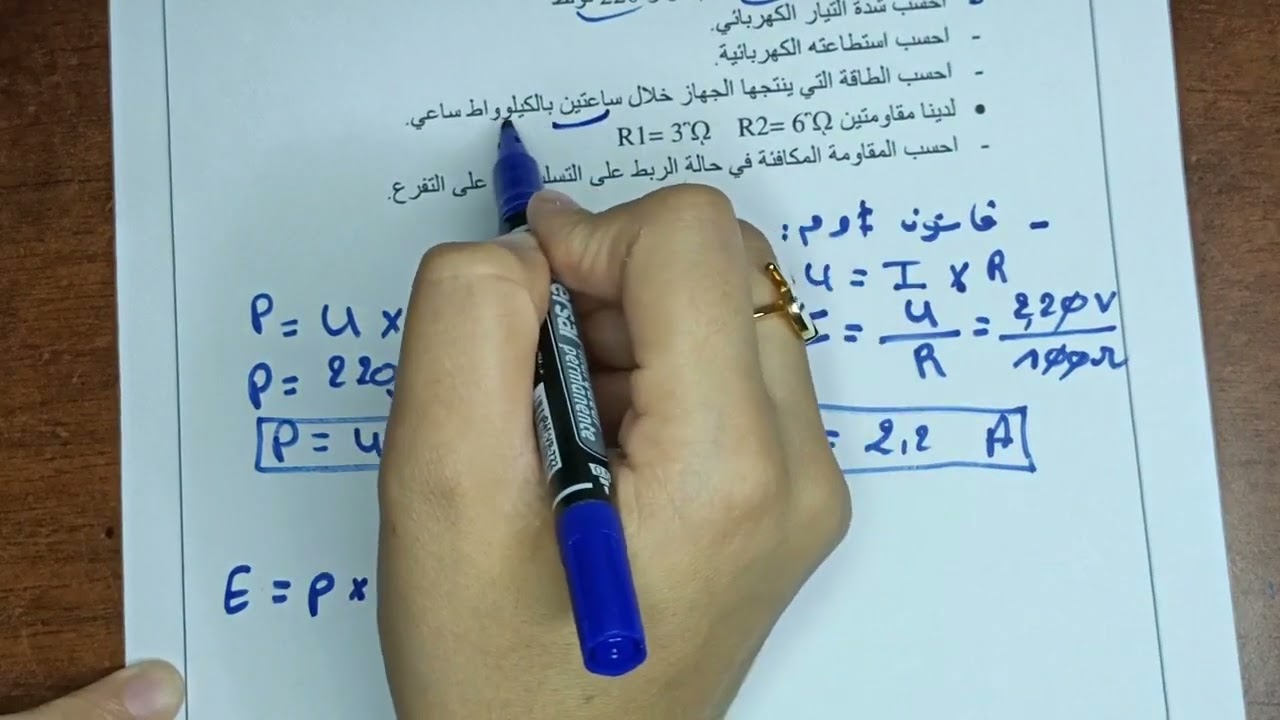 احسب شدة التيار الكهربائي.
- احسب استطاعته الكهربائية.
- احسب الطاقة التي ينتجها الجهاز خلال ساعتين بالكيلوواط ساعي.
• لدينا مقاومتين R1= 3˝Ω R2= 6˝Ω
- احسب المقاومة المكافئة في حالة الربط على على التفرع.
- قانون اوم :
U = I × R
= U / R = 220 V / 100 Ω
= 2,2 A
P = U ×
P = 220
P = U
E = P ×
ersal permanente